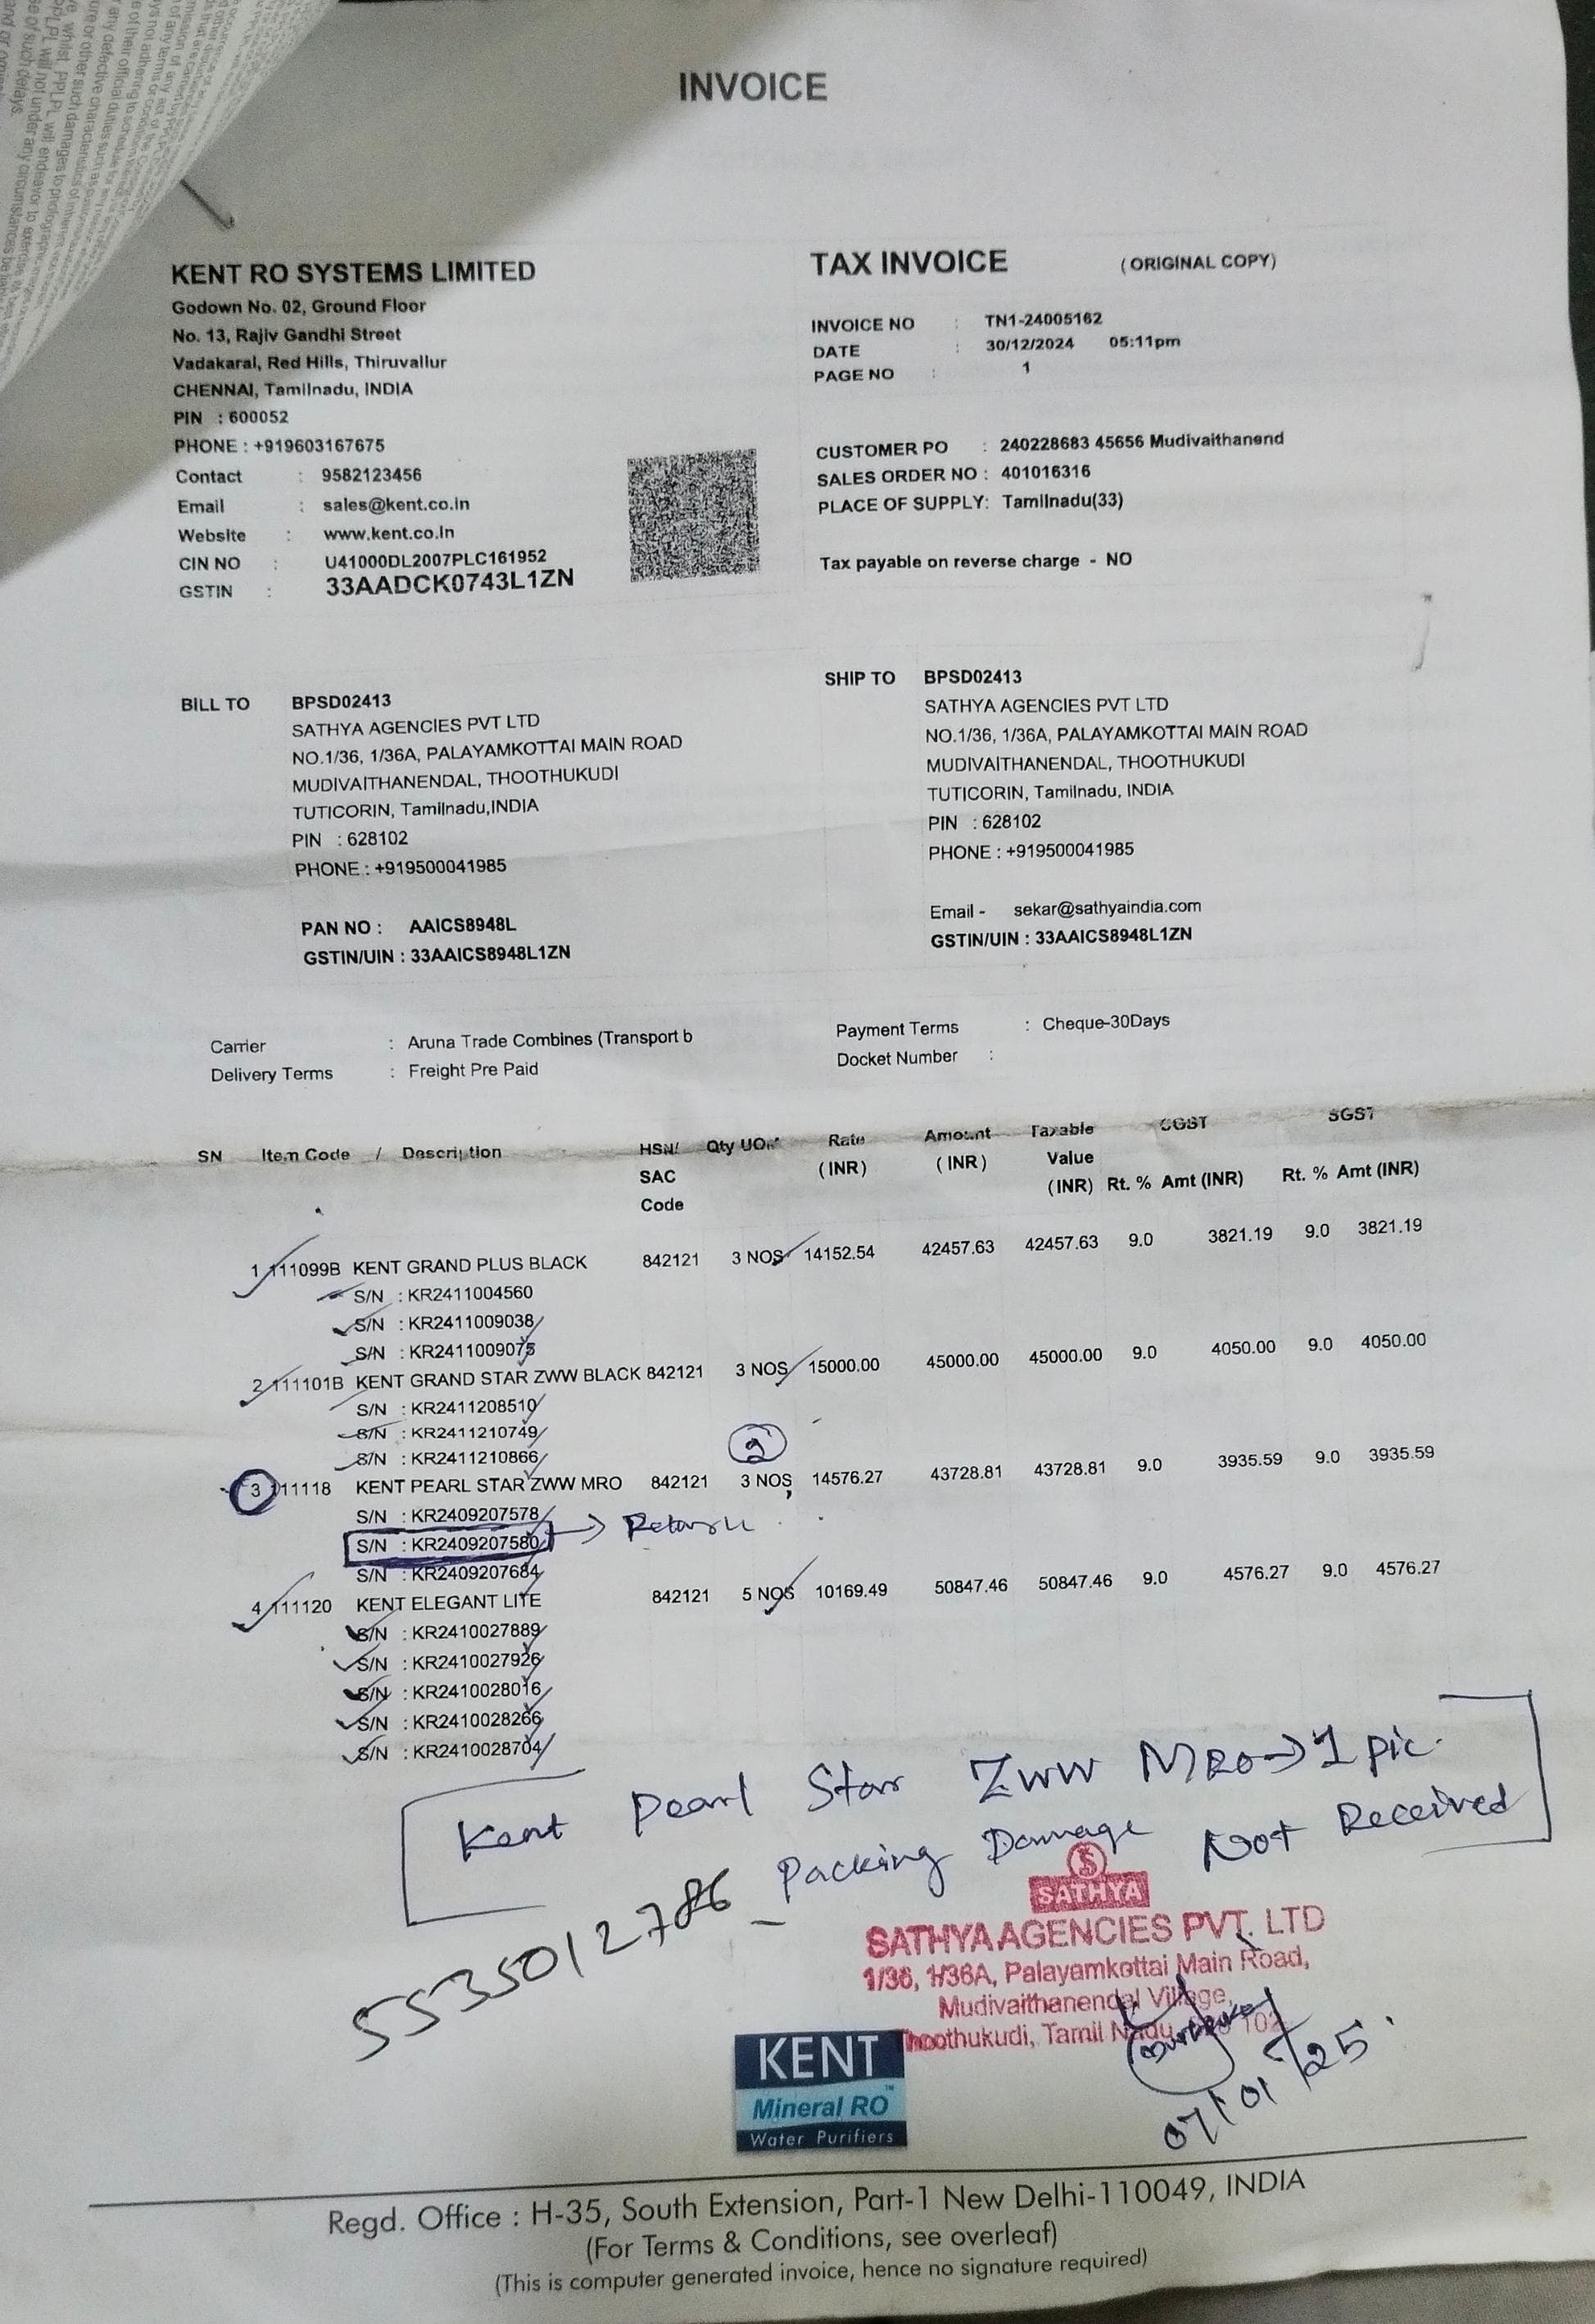 INVOICE
KENT RO SYSTEMS LIMITED
Godown No. 02, Ground Floor
No. 13, Rajiv Gandhi Street
Vadakaral, Red Hills, Thiruvallur
CHENNAI, Tamilnadu, INDIA
PIN : 600052
PHONE : +919603167675
Contact : 9582123456
Email : sales@kent.co.in
Website : www.kent.co.in
CIN NO : U41000DL2007PLC161952
GSTIN : 33AADCK0743L1ZN
TAX INVOICE (ORIGINAL COPY)
INVOICE NO : TN1-24005162
DATE : 30/12/2024 05:11pm
PAGE NO : 1
CUSTOMER PO : 240228683 45656 Mudivaithanend
SALES ORDER NO : 401016316
PLACE OF SUPPLY: Tamilnadu(33)
Tax payable on reverse charge - NO
BILL TO BPSD02413
SATHYA AGENCIES PVT LTD
NO.1/36, 1/36A, PALAYAMKOTTAI MAIN ROAD
MUDIVAITHANENDAL, THOOTHUKUDI
TUTICORIN, Tamilnadu,INDIA
PIN : 628102
PHONE : +919500041985
PAN NO : AAICS8948L
GSTIN/UIN : 33AAICS8948L1ZN
SHIP TO BPSD02413
SATHYA AGENCIES PVT LTD
NO.1/36, 1/36A, PALAYAMKOTTAI MAIN ROAD
MUDIVAITHANENDAL, THOOTHUKUDI
TUTICORIN, Tamilnadu, INDIA
PIN : 628102
PHONE : +919500041985
Email - sekar@sathyaindia.com
GSTIN/UIN : 33AAICS8948L1ZN
Carrier : Aruna Trade Combines (Transport b
Delivery Terms : Freight Pre Paid
Payment Terms : Cheque-30Days
Docket Number :
SN Item Code / Description HSN/ Qty UOM Rate Amount Taxable CGST SGST
SAC (INR) (INR) Value
Code (INR) Rt. % Amt (INR) Rt. % Amt (INR)
1 111099B KENT GRAND PLUS BLACK 842121 3 NOS 14152.54 42457.63 42457.63 9.0 3821.19 9.0 3821.19
S/N : KR2411004560
S/N : KR2411009038
S/N : KR2411009075
2 111101B KENT GRAND STAR ZWW BLACK 842121 3 NOS 15000.00 45000.00 45000.00 9.0 4050.00 9.0 4050.00
S/N : KR2411208510
S/N : KR2411210749
S/N : KR2411210866
2
3 111118 KENT PEARL STAR ZWW MRO 842121 3 NOS 14576.27 43728.81 43728.81 9.0 3935.59 9.0 3935.59
S/N : KR2409207578
S/N : KR2409207580 → Return
S/N : KR2409207684
4 111120 KENT ELEGANT LITE 842121 5 NOS 10169.49 50847.46 50847.46 9.0 4576.27 9.0 4576.27
S/N : KR2410027889
S/N : KR2410027926
S/N : KR2410028016
S/N : KR2410028266
S/N : KR2410028704
Kent Pearl Star Zww MRO → 1 pic.
Packing Damage Not Received
5535012786
SATHYA
SATHYA AGENCIES PVT. LTD
1/36, 1/36A, Palayamkottai Main Road,
Mudivaithanendal Village,
Thoothukudi, Tamil Nadu 102
07/01/25
KENT
Mineral RO™
Water Purifiers
Regd. Office : H-35, South Extension, Part-1 New Delhi-110049, INDIA
(For Terms & Conditions, see overleaf)
(This is computer generated invoice, hence no signature required)